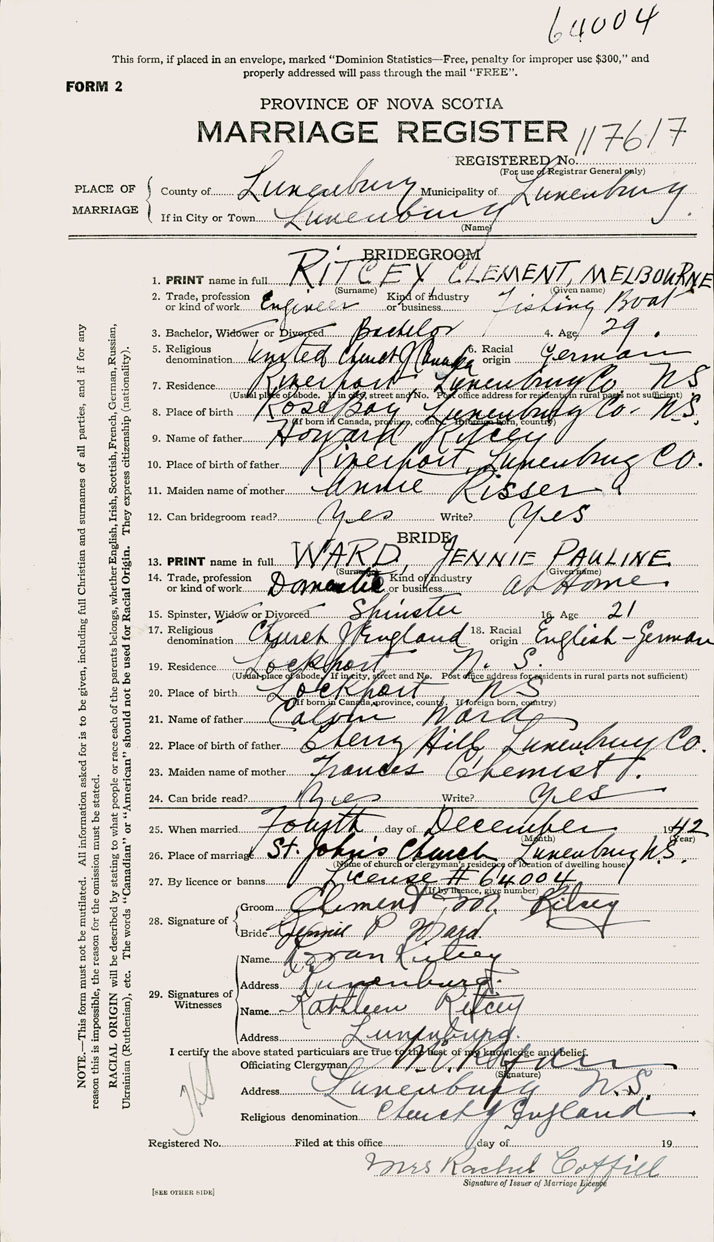 64004
This form, if placed in an envelope, marked "Dominion Statistics—Free, penalty for improper use $300," and
properly addressed will pass through the mail "FREE".
FORM 2
PROVINCE OF NOVA SCOTIA
MARRIAGE REGISTER
117617
REGISTERED No.
(For use of Registrar General only)
PLACE OF MARRIAGE
County of Lunenburg Municipality of Lunenburg
If in City or Town Lunenburg
(Name)
BRIDEGROOM
1. PRINT name in full RITCEY CLEMENT, MELBOURNE
(Surname) (Given name)
2. Trade, profession or kind of work Engineer Kind of industry or business Fishing Boat
3. Bachelor, Widower or Divorced Bachelor 4. Age 29.
5. Religious denomination United Church of Canada 6. Racial origin German
7. Residence Riverport Lunenburg Co NS
(Usual place of abode. If in city, street and No. Post office address for residents in rural parts not sufficient)
8. Place of birth Rose Bay Lunenburg Co. N.S.
(If born in Canada, province, county. If foreign born, country)
9. Name of father Howard Ritcey
10. Place of birth of father Riverport, Lunenburg Co.
11. Maiden name of mother Annie Risser
12. Can bridegroom read? Yes Write? Yes
BRIDE
13. PRINT name in full WARD, JENNIE PAULINE
(Surname) (Given name)
14. Trade, profession or kind of work Domestic Kind of industry or business at Home
15. Spinster, Widow or Divorced Spinster 16. Age 21
17. Religious denomination Church of England 18. Racial origin English-German
19. Residence Lockeport N. S.
(Usual place of abode. If in city, street and No. Post office address for residents in rural parts not sufficient)
20. Place of birth Lockeport NS
(If born in Canada, province, county. If foreign born, country)
21. Name of father Calvin Ward
22. Place of birth of father Cherry Hill, Lunenburg Co.
23. Maiden name of mother Frances Chemist.
24. Can bride read? Yes Write? Yes
25. When married Fourth day of December 1942
(Month) (Year)
26. Place of marriage St. John's Church Lunenburg N.S.
(Name of church or clergyman's residence or location of dwelling house)
27. By licence or banns License # 64004
(If by licence, give number)
28. Signature of
Groom Clement M. Ritcey
Bride Jennie P Ward
29. Signatures of Witnesses
Name Ritcey
Address Lunenburg.
Name Kathleen Ritcey
Address Lunenburg.
I certify the above stated particulars are true to the best of my knowledge and belief.
Officiating Clergyman
(Signature)
Address Lunenburg N.S.
Religious denomination Church of England
Registered No. Filed at this office day of 19
Mrs Rachel Coffill
Signature of Issuer of Marriage Licence
[SEE OTHER SIDE]
NOTE.—This form must not be mutilated. All information asked for is to be given, including full Christian and surnames of all parties, and if for any
reason this is impossible, the reason for the omission must be stated.
RACIAL ORIGIN will be described by stating to what people or race each of the parents belongs, whether English, Irish, Scottish, French, German, Russian,
Ukrainian (Ruthenian), etc. The words "Canadian" or "American" should not be used for Racial Origin. They express citizenship (nationality).